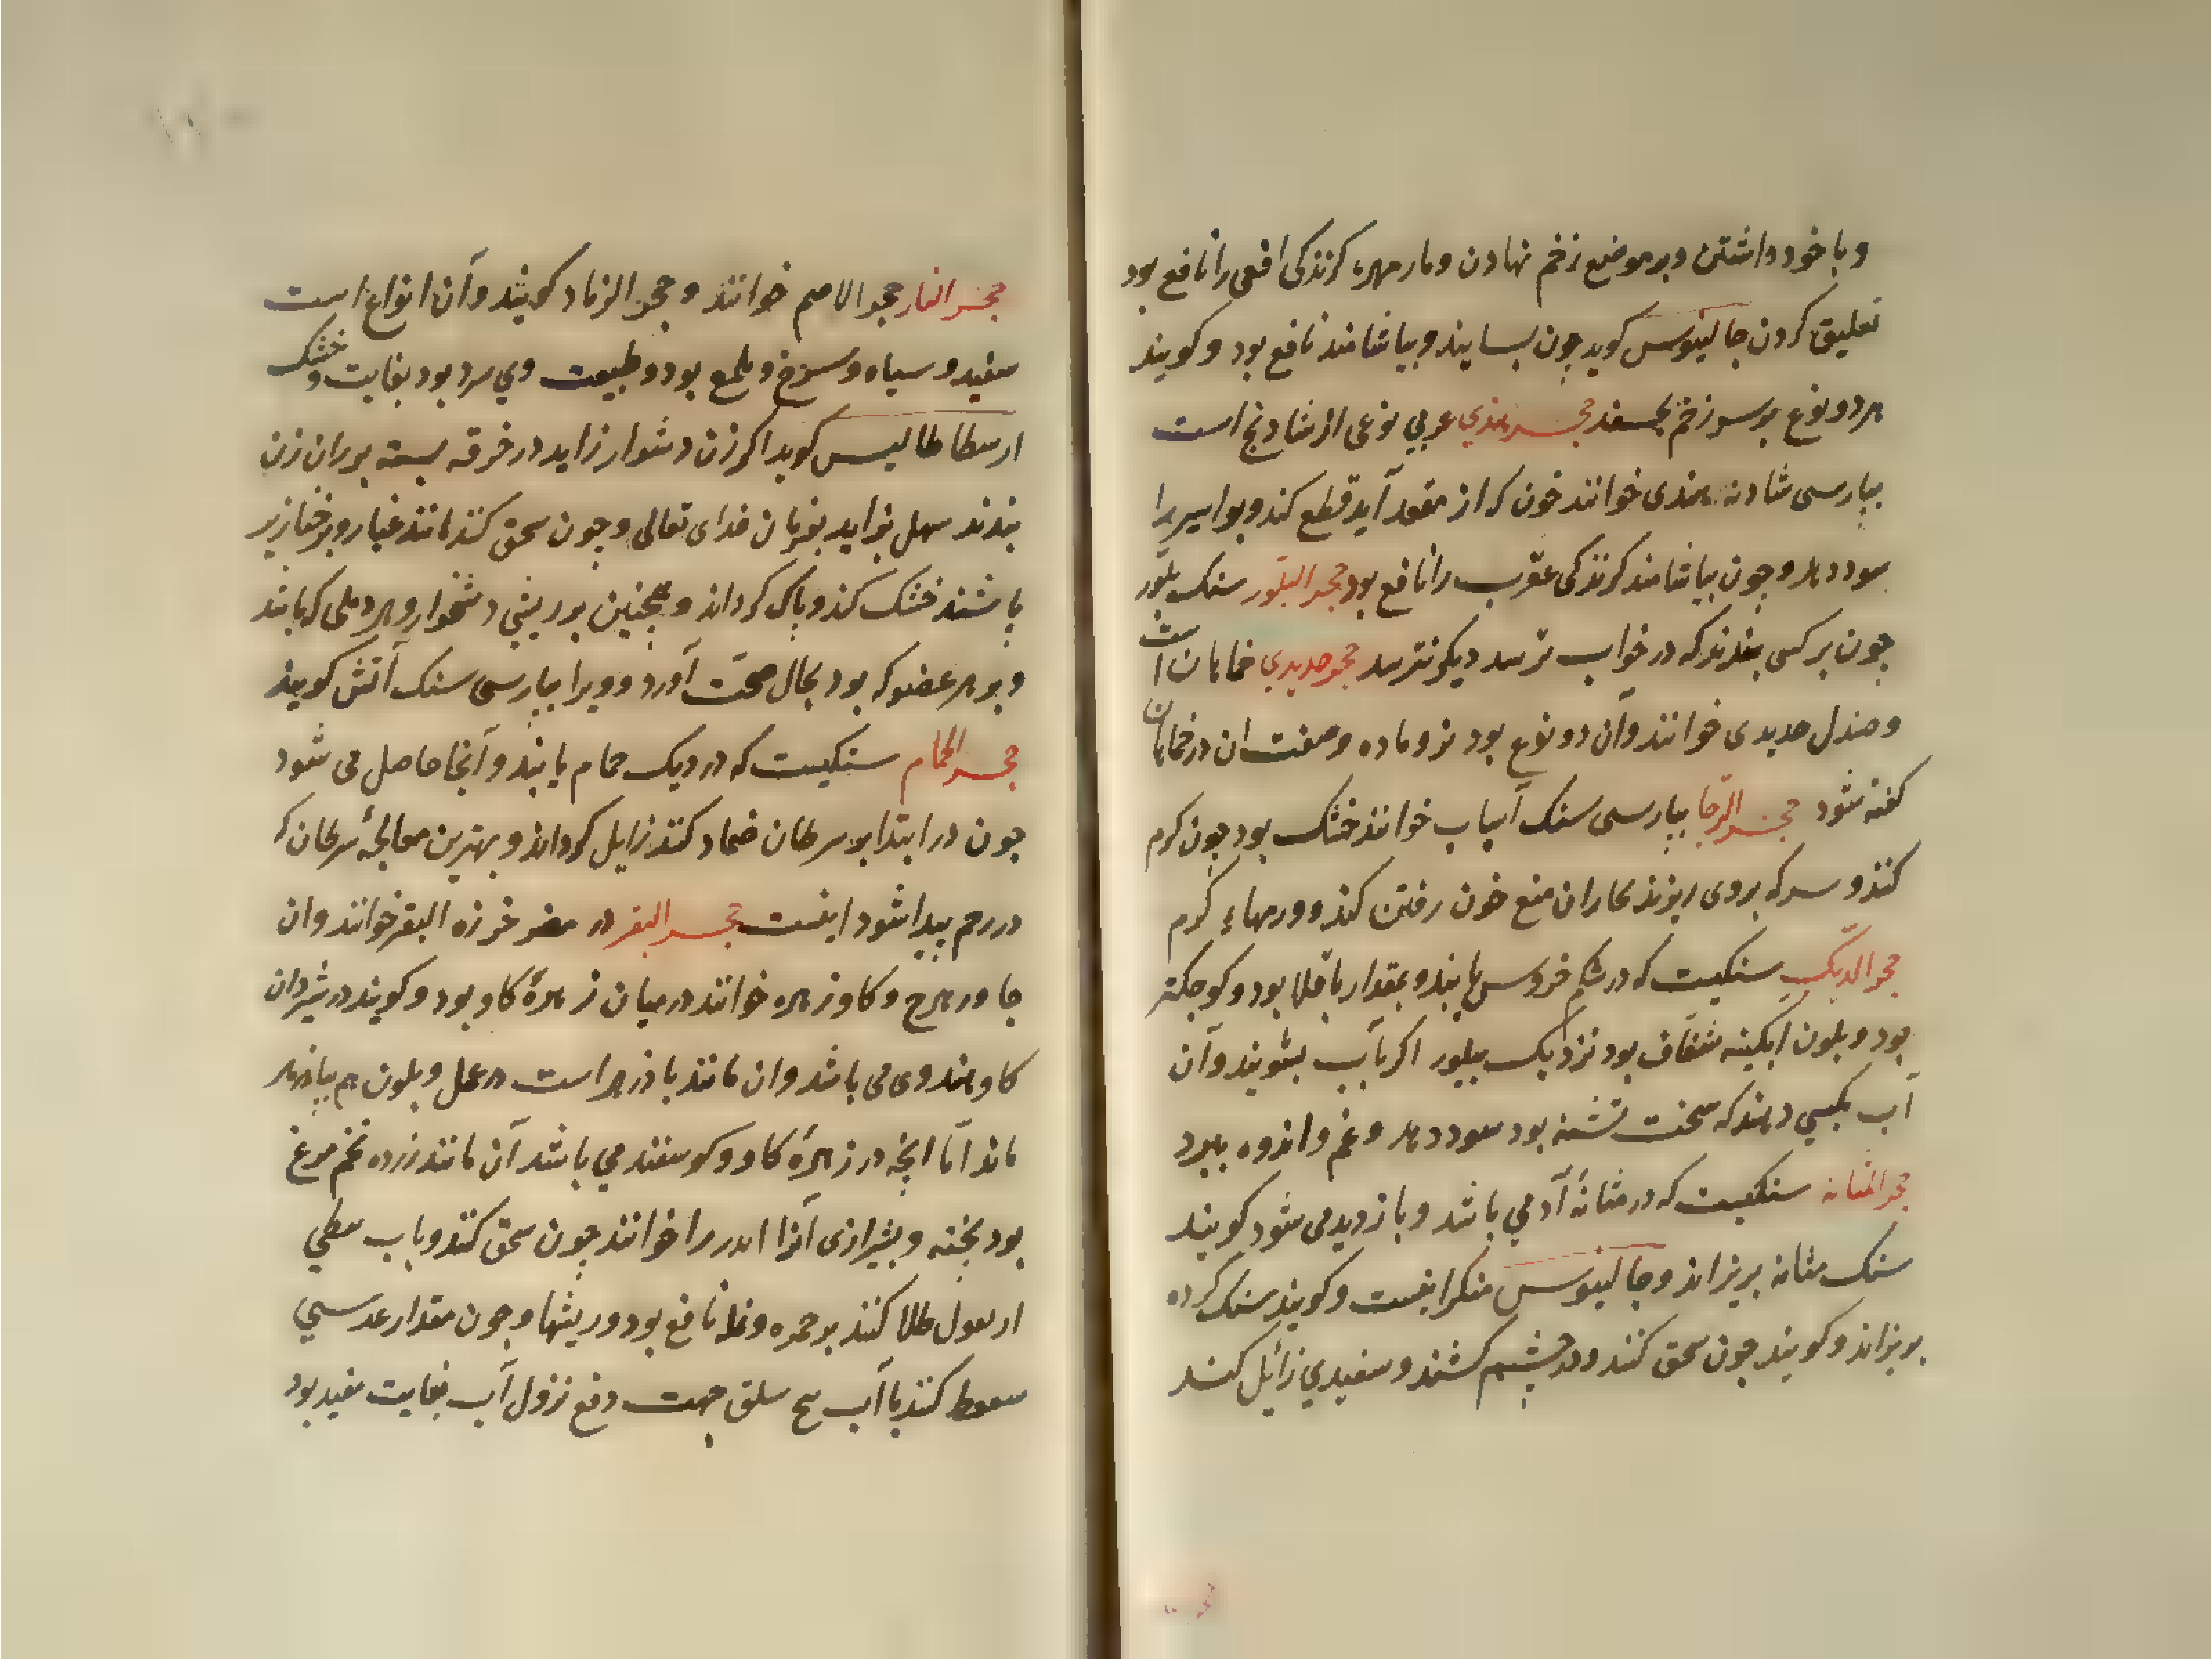 و با خود داشتن و بر موضع زخم نهادن و مار مهره کزندکی افعی را نافع بود
تعلیق کردن جالینوس کوید چون بسایند و بیاشامند نافع بود و کویند
هر دو نوع بر سر زخم بچسفد حجر هندي عربي نوعی از شادنج است
بپارسی شادنه هندی خوانند خون که از مقعد آید قطع کند و بواسیر را
سود دهد و چون بیاشامند کزندکی عقرب را نافع بود حجر البلّور سنک بلّور
چون بر کسی بندند که در خواب ترسد دیکر نترسد حجر حدیدي خماهان است
و صندل حدیدی خوانند و آن دو نوع بود نر و ماده و صفت ان در خماهان
کفته شود حجر الرّحا بپارسی سنک آسیاب خوانند خشک بود چون کرم
کنند و سرکه بروی ریزند بخار ان منع خون رفتن کند و ورمهاء کرم
حجر الدّیک سنکیست که در شکم خروس یابند و بمقدار باقلا بود و کوجکتر
بود و بلون ابکینه شفّاف بود نزدیک ببلور اکر بآب بشویند وآن
آب بکسي دهند که سخت تشنه بود سود دهد و غم و اندوه ببرد
حجر المثانه سنکیست که در مثانهٔ آدمي باشد و بازدید می شود کویند
سنک مثانه بریزاند و جالینوس منکر اینست و کویند سنک کرده
بریزاند و کویند چون سحق کنند و در چشم کشند و سفیدي زائل کند
حجر النار حجر الاصم خوانند و حجر الزناد کویند وآن انواع است
سفید و سیاه و سرخ و ملمع بود و طبیعت وي سرد بود بغایت و خشک
ارسطاطالیس کوید اکر زن دشوار زاید در خرقه بسته بر ران زن
بندند سهل بزاید بفرمان خدای تعالی و چون سحق کنند مانند غبار و بر خنازیر
پاشند خشک کند و پاک کرداند و همچنین بر ریشي دشخوار و هر دملی که باشد
و بر هر عضو که بود بحال صحّت آورد و ویرا بپارسی سنک آتش کویند
حجر الحمام سنکیست که در دیک حمام یابند و آنجا حاصل می شود
چون در ابتدا بر سرطان ضماد کنند زایل کرداند و بهترین معالجهٔ سرطان که
در رحم پیدا شود اینست حجر البقر در مصر خرزه البقر خوانند و ان
جاورهرج و کاوزهره خوانند در میان زهرهٔ کاو بود و کویند در شیردان
کاو هندوی می باشد و ان مانند بادزهر است در عمل و بلون هم بپادزهر
ماند امّا انچه در زهرهٔ کاو و کوسفند مي باشد آن مانند زرده تخم مرغ
بود پخته و بشیرازی آنرا خوانند چون سحق کنند و باب
طلا کنند بر حمره و نمله نافع بود و ریشها و چون مقدار عدسي
سعوط کنند با آب بیخ سلق جهت دفع نزول آب بغایت مفید بود